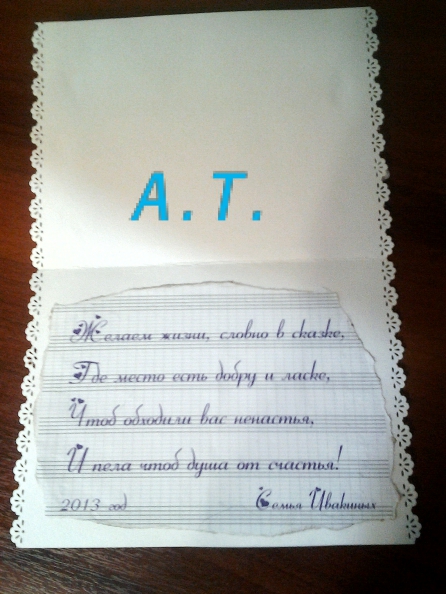 А.Т.
Желаем жизни, словно в сказке,
Где место есть добру и ласке,
Чтоб обходили вас ненастья,
И пела чтоб душа от счастья!
2013 год Семья Ивакиных